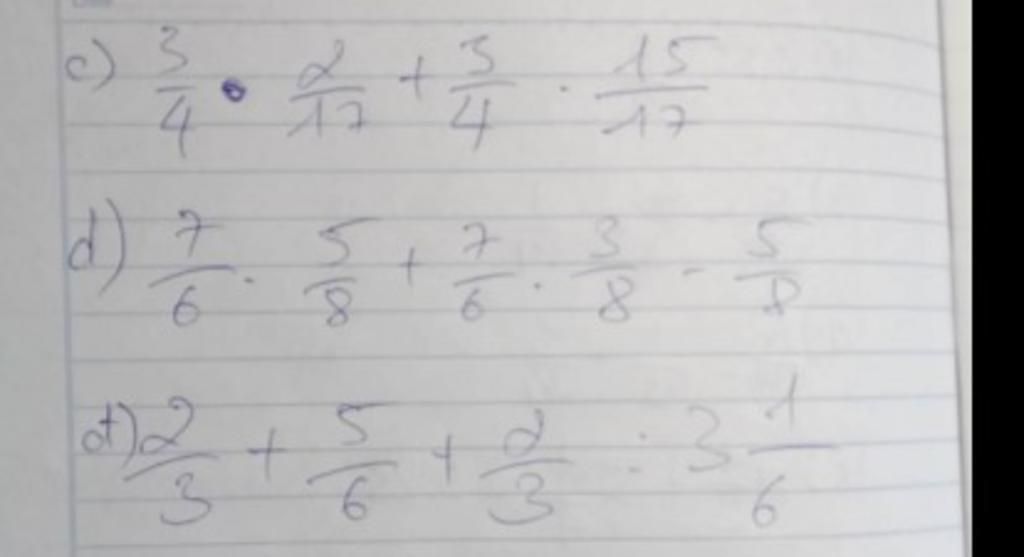 c) 3/4 · 2/17 + 3/4 · 15/17
d) 7/6 · 5/8 + 7/6 · 3/8 - 5/8
đ) 2/3 + 5/6 + 2/3 : 3 1/6